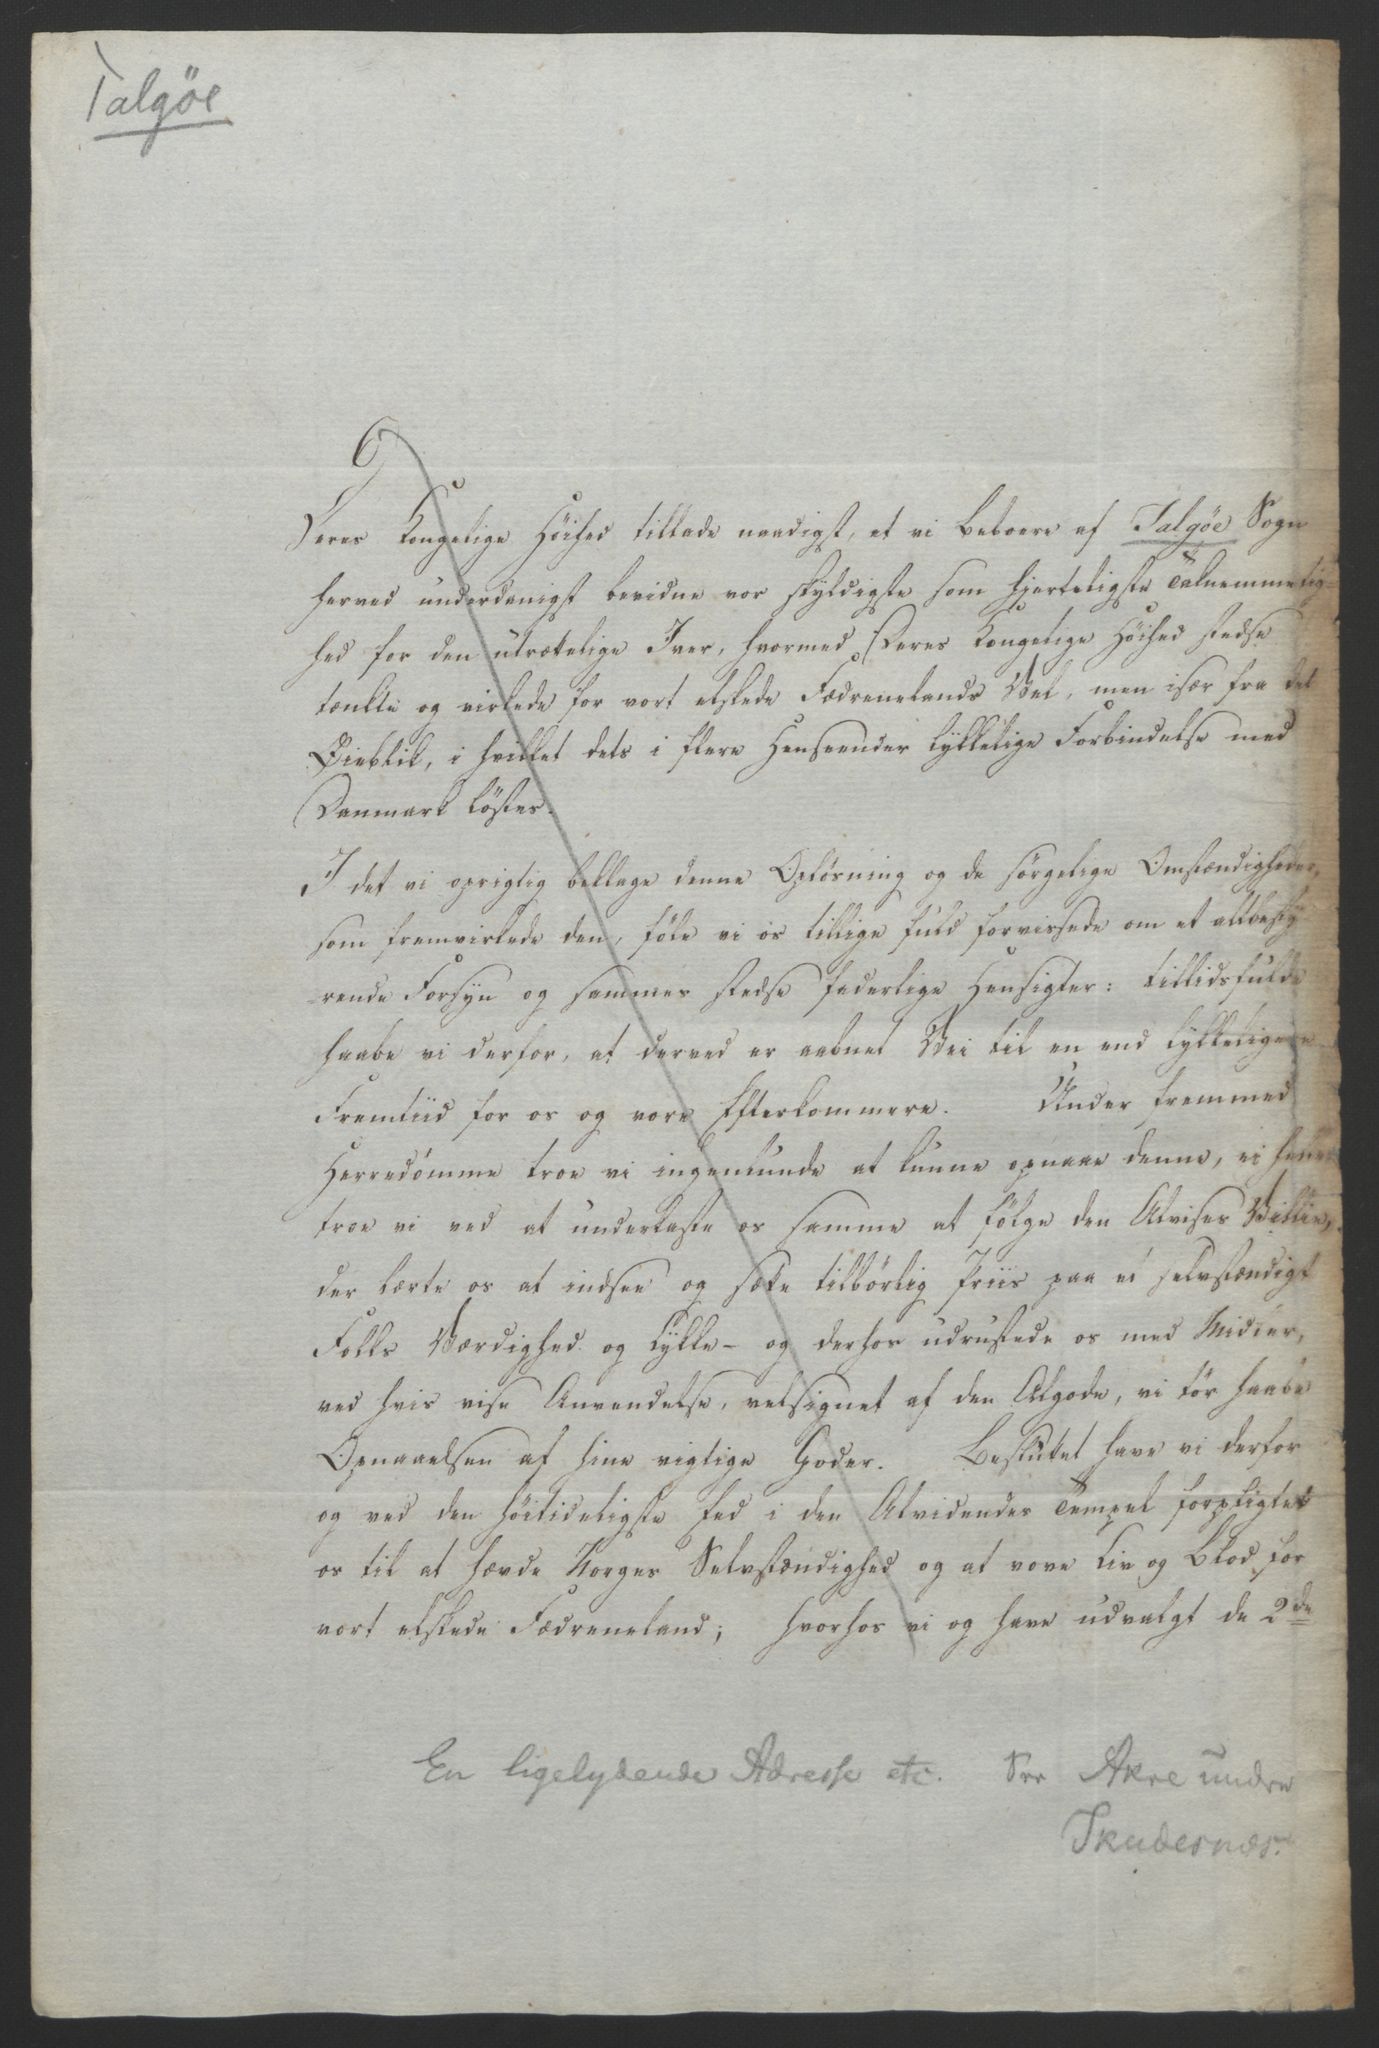 Talgöe
Deres Kongelige Höihed tillade naadigst, at vi Beboere af Talgöe Sogn
herved underdanigst bevidne vor skyldigste som hjerteligste Taknemmelig-
hed for den utrættelige Iver, hvormed Deres Kongelige Höihed stedse
tænkte og virkede for vort elskede Fædrenelands Vel, men især fra det
Öieblik, i hvilket dets i flere Henseender lykkelige Forbindelse med
Danmark löstes.
I det vi oprigtig beklage denne Oplösning og de sörgelige Omstændigheder,
som fremvirkede den, föle vi os tillige fuld forvissede om et altbesty-
rende Forsyn og sammes stedse faderlige Hensigter: tillidsfulde
haabe vi derfor, at derved er aabnet Vei til en end lykkeligere
Fremtiid for os og vore Efterkommere. Under fremmed
Herredömme troe vi ingenlunde at kunne opnaae denne, ei heller
troe vi ved at underkaste os samme at fölge den Alvises Villie,
der lærte os at indsee og sætte tilbörlig Priis paa et selvstændigt
Folks Værdighed og Lykke - og derhos udrustede os med Midler,
ved hvis vise Anvendelse, velsignet af den Algode, vi tör haabe
Opnaaelsen af hine vigtige Goder. Besluttet have vi derfor
og ved den höitideligste Eed i den Alvidendes Tempel forpligtet
os til at hævde Norges Selvstændighed og at vove Liv og Blod for
vort elskede Fædreneland; hvorhos vi og have udvalgt de 2de
En ligelydende Adresse etc. See Akre undre
Skudesnæs.